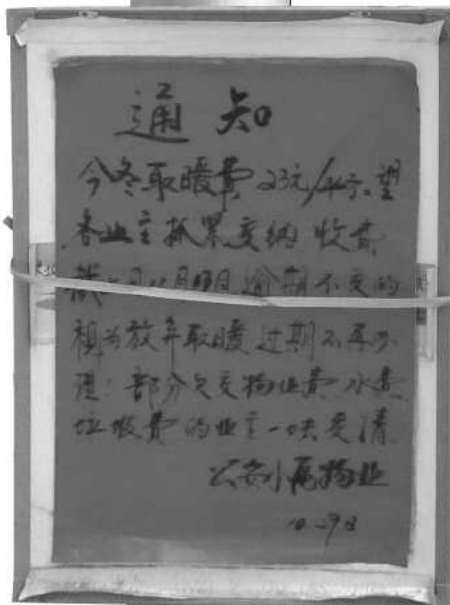 通知
今冬取暖费23元/平方.望
各业主抓紧交纳 收费
截 月 日 逾期不交的
视为放弃取暖 过期不再办
理: 部分欠交物业费 水费
垃圾费的业主一块交清
公安小 物业
10. 29日